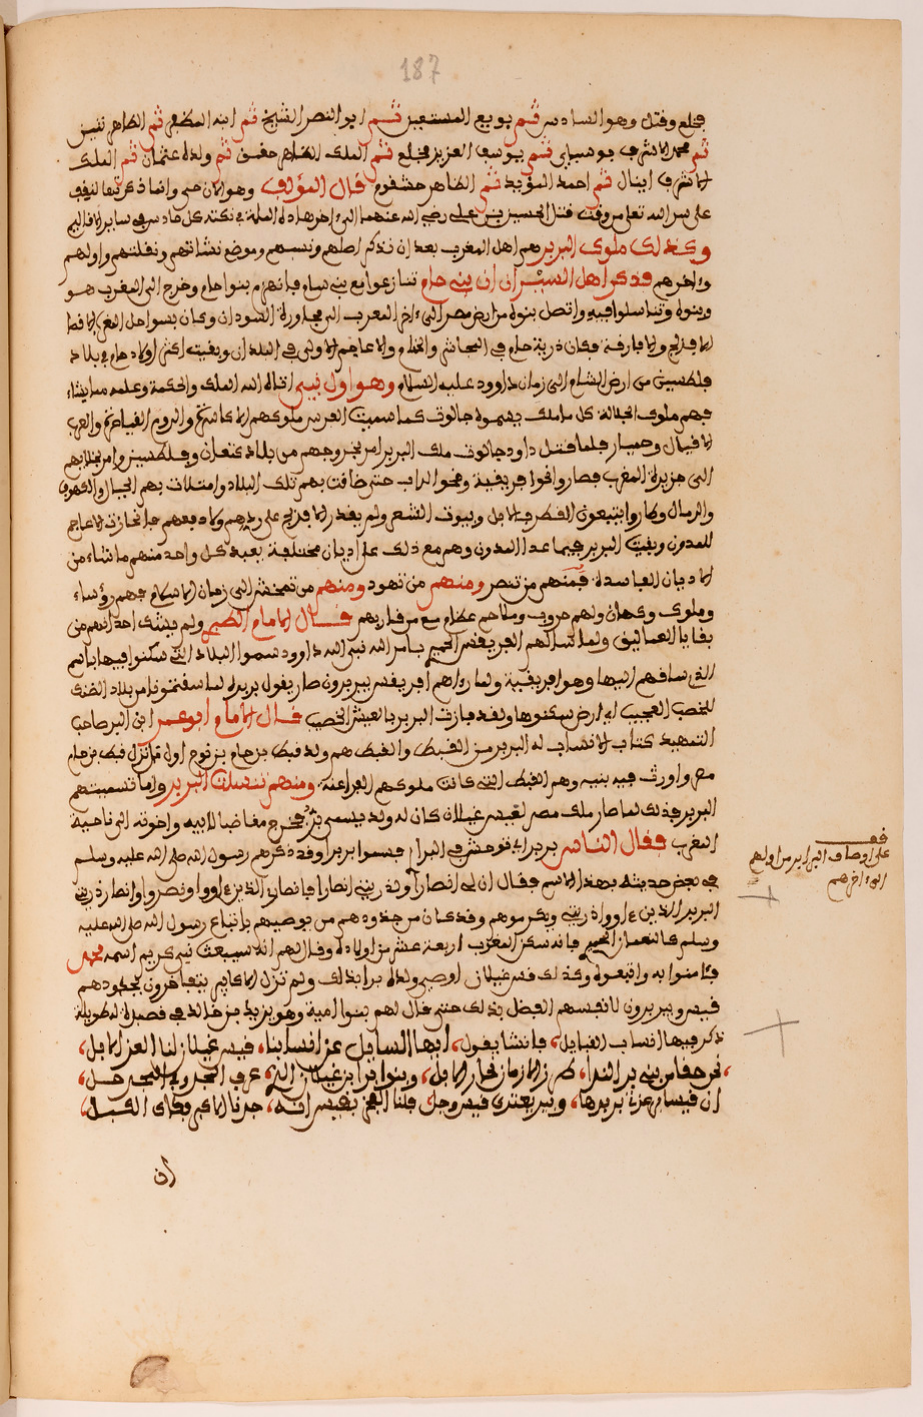 187
فخلع وقتل وهو السادس ثم بويع المستعين ثم ابو النصر الشيخ ثم ابنه المظفر ثم الظاهر
ثم محمد الاشرف ثم يوسف العزيز فخلع ثم الملك الظاهر جقمق ثم ولده عثمان ثم الملك
الاشرف اينال ثم احمد المؤيد ثم الظاهر خشقدم قال المؤلف وهو الان حي وانما ذكرتها لتقف
على سر الله تعلى من وقت قتل الحسين بن على رضي الله عنهما الى اخرها
وكذلك ملوك البربر هم اهل المغرب بعد ان نذكر اصلهم ونسبهم وموضع نشاتهم ونقلتهم واولهم
واخرهم فذكر اهل السير ان بنى حام تنازعوا مع بنى سام فانهزم بنوا حام وخرج الى المغرب هو
وبنوه وتناسلوا فيه واتصل بنوه من ارض مصر الى اخر المغرب الى مجاورة السودان وكان بسواحل الغرب
الافرنج والافارقة فكان ذرية حام في
فلسطين من ارض الشام الى زمان داوود عليه السلام وهو اول نبى اتاه الله الملك والحكمة وعلمه مما يشاء
فهم ملوك كل ما ملك يسموه جالوت كما سميت الفرس ملوكهم الاكاسرة والروم القياصرة والعرب
الاقيال وحمير فلما قتل داود جالوت ملك البربر امر بخروجهم من بلاد كنعان وفلسطين وامر بجلائهم
الى جزيرة المغرب فصاروا نحو افريقية ونحو الزاب حتى ضاقت بهم تلك البلاد وامتلات بهم الجبال والكهوف
والرمال وصاروا يتبعون القطر بالابل وبيوت الشعر ولم يقدر الافرنج على ردهم ولا دفعهم فانحازت الاعاجم
للمدن وبقيت البربر فيما عدا المدن وهم مع ذلك على اديان مختلفة يعبد كل واحد منهم ما شاء من
الاديان الفاسدة فمنهم من تنصر ومنهم من تهود ومنهم من تمجس الى زمان الاسلام فيهم رؤساء
وملوك وكهان ولهم حروب وملاحم عظام مع من قاربهم قال الامام الطبرى ولم يشك احد انهم من
بقايا العمالق ولما اتى لهم افريقش الحميرى بامر الله نبى الله داوود سموا البلاد التى سكنوا فيها باسم
الذى ساقهم اليها وهو افريقية ولما راهم افريقس يبربرون صار يقول
الخصب العجيب اى ارض سكنوها ولقد فازت البربر بالعيش الخصب قال الامام ابو عمر ابن البر صاحب
التمهيد كتاب الانساب له البربر من القبط والقبط هم ولد قبط بن حام بن نوح اول من نزل قبط بن حام
مصر واورث فيه بنيه وهم القبط التى كانت ملوكهم الفراعنة ومنهم تنسلت البربر واما تسميتهم
البربر فذلك لما صار ملك مصر لقيس غيلان كان له ولد يسمى بر فخرج مغاضبا لابيه واخوته الى ناحية
المغرب فقال الناس بربر اى توحش في البراري فسموا بربرا وقد ذكرهم رسول الله صلى الله عليه وسلم
في بعض حديثه بهذا الاسم فقال ان لى انصارا ولذريتى انصارا فانصارى الذين ءاووا ونصروا وانصار ذريتى
البربر الذين ءاووا ذريتى ويكرموهم وقد كان من جدودهم من يوصيهم باتباع رسول الله صلى الله عليه
وسلم كالنعمان الحميرى فانه سكن المغرب اربعة عشر من اولاده وقال لهم انه سيبعث نبى كريم اسمه محمد
فئامنوا به واتبعوه وكذلك قيس غيلان اوصى ولده برا بذلك ولم تزل الاكابر يتفاخرون بجدودهم
قيس وبربر ويرون لانفسهم الفضل بذلك حتى قال لهم بنوا امية وهو يزيد بن خالد في قصيدة له طويلة
ذكر فيها انساب القبايل، فانشا يقول، ايها السايل عن انسابنا، قيس غيلان لنا العز الاول،
نحن حقا من بنى بر الندا، طرز الازمان نحار الابل، وبنوا بر ابن غيلان الذى، عرف المجد وفى المجد حل،
ان قيسا من عز بربرها، وببر يعتزى قيس وجل، فلنا الفخر بقيس انه، جدنا الاكبر فكاك الكبل،
ان
قف
على اوصاف البرابر من اولهم
الى اخرهم